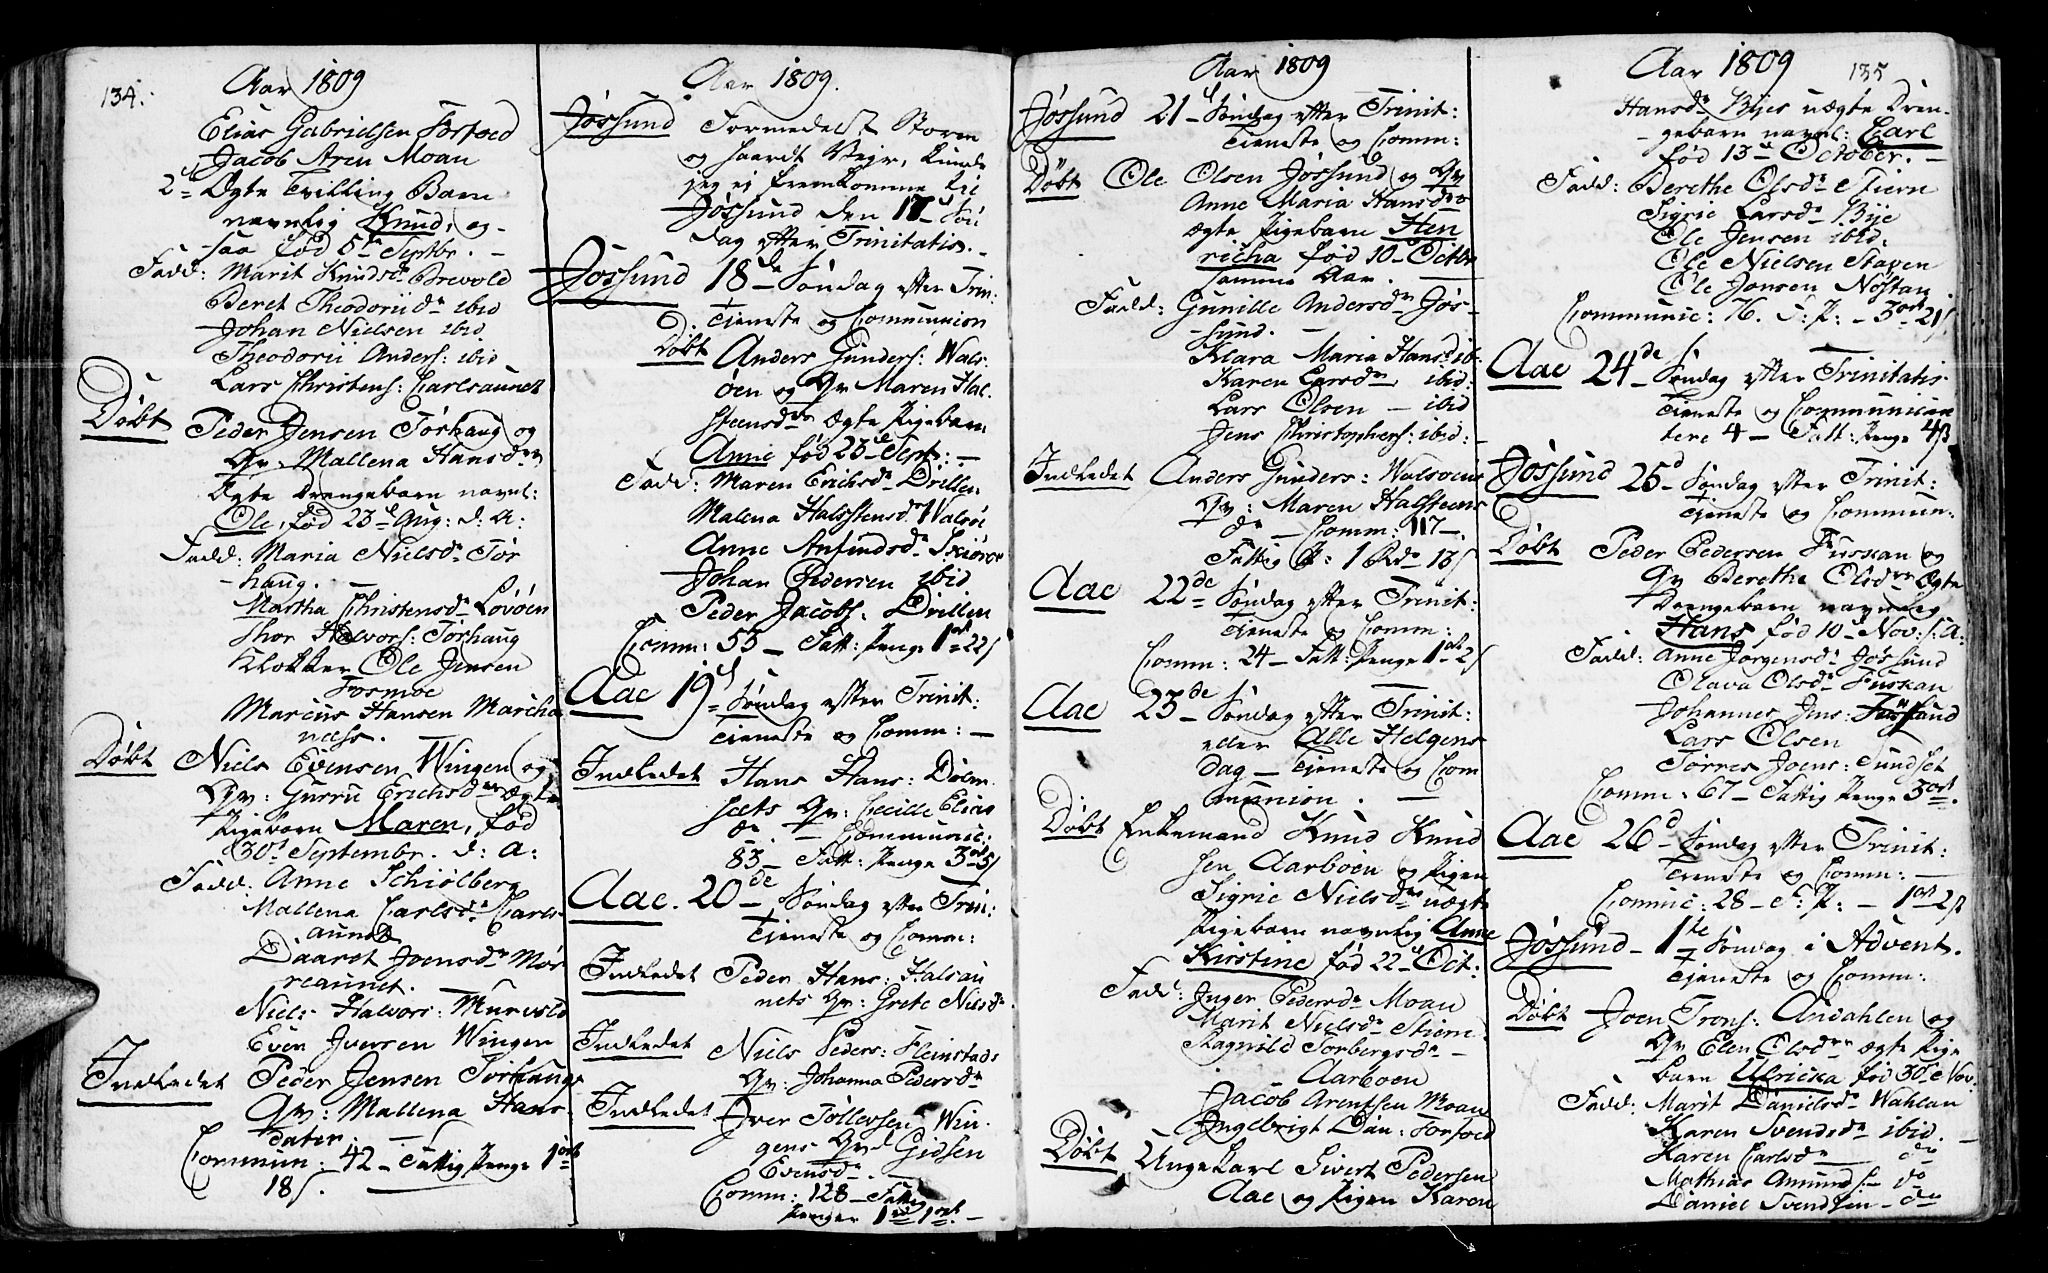 134.
Aar 1809
Elias Gabrielsen Forfoed
Jacob Aren Moan
2d Ægte Tvilling Barn
navnlig Knud, og-
saa fød 5te Septbr. -
Fadd: Marit Knudsdr Brevold
Beret Theodoriidr ibid
Johan Nielsen ibid
Theodorii Anders: ibid
Lars Christens: Carlsaunet
Døbt Peder Jensen Tørhaug og
Qv. Mallena Hansdr
Ægte Drengebarn navnl:
Ole, fød 23d Aug: d: A:
Fadd: Maria Nielsdr Tør
haug. -
Martha Christensdr Lovøen
Thor Halvors: Tørhaug
Klokker Ole Jensen
Fosmoe
Marcus Hansen Marcha
næss.
Døbt Niels Evensen Wingen og
Qv: Gurru Erichsdr Ægte
Pigebarn Maren, fød
30t Septembr. d: A:
Fadd: Anne Schiølberg
Mallena Carlsdr Carls-
aunet
Daaret Joensdr Mør
reaunet.
Niels Halvors: Murvold
Even Iversen Wingen
Indledet Peder Jensen Tørhaugs
Qv: Mallena Hans
dater -
Commun: 42 - Fattig Penge 1ort
18 s.
Aar 1809.
Jøssund Formedelst Storm
og haardt Vejr, kunde
jeg ej fremkomme til
Jøssund den 17d Søn
dag efter Trinitatis.
Jøssund 18de Søndag efter Trin:
Tieneste og Communion
Døbt Anders Gunders: Wals-
øen og Qv Maren Hal-
steensdr Ægte Pigebarn
Anne fød 23d Sept: -
Fadd: Maren Erichsdr Drillen
Malena Halsstensdr Walsøe
Anne Anfindsdr Skiørøe
Johan Pedersen ibid
Peder Jacobs. Drillen
Comm: 53 - Fatt: Penge 1ort 22 s
Aae 19d Søndag efter Trinit:
Tieneste og Comm: -
Indledet Hans Hans: Dølm
sæts Qv: Cecille Elias
dr - Communic:
83 - Fatt: Penge 3ort 5 s
Aae. 20de Søndag efter Trin:
Tieneste og Comm:
Indledet Peder Hans: Halsau
nets Qv: Grete Nilsdr
Indledet Niels Peders: Fleinstads
Qv: Johanna Pedersdr
Indledet Iver Tøllefsen Win-
gens Qv Gidsen
Evensdr. -
Comm: 128 - Fattig
Penger 1rd 1ort. -
Aar 1809
Jøssund 21d Søndag efter Trinit:
Tieneste og Comm:
Døbt Ole Olsen Jøssund og Qv
Anne Maria Hansdr
ægte Pigebarn Hen
richa fød 10 - Octbr
samme Aar.
Fadd: Gunille Andersdr Jøs-
sund. -
Klara Maria Hansd ib:
Karen Larsdr, ibid:
Lars Olsen - ibid
Jens Christophers: ibid: -
Indledet Anders Gunders: Walsøens
Qv: Maren Halsteens
dr - Comm: 117 -.
Fattig P: 1 Rdr 13 s
Aae 22de Søndag efter Trinit:
Tieneste og Comm:
Comm: 24 - Fatt: Penge 1ort 2 s
Aae 23de Søndag efter Trinit:
eller Alle Helgens
dag - Tieneste og Com
munion. -
Døbt Enkemand Knud Knud
sen Aarboen og Pigen
Sigrie Nielsdr uægte
Pigebarn navnlig Anne
Kirstine fød 22d Oct:
Fadd: Inger Pedersdr Moan
Marit Nielsdr Stiern
Ragnild Torbergsdr -
Aarboen
Jacob Arentsen Moan
Ingebrigt Dan: Forfoed
Døbt Unge Karl Sivert Pedersen
Aae og Pigen Karen
Aar 1809 135
Hansdr Byes uægte Dren-
gebarn navnl: Carl
fød 13d October. -
Fadd: Berethe Olsdr Stiern
Sigrie Larsdr Bye
Ole Jensen ibid.
Ole Nielsen Stagen
Ole Jonsen Nøstan
Communic: 76. F: P: - 3ort 21 s
Aae 24de Søndag efter Trinitatis
Tieneste og Communican
tere 4 - Fatt: Penge 4 s
Jøssund 25d Søndag efter Trinit:
Tieneste og Commun:
Døbt Peder Pedersen Fuskan og
Qv Berethe Olsdr Ægte
Drengebarn navnlig
Hans fød 10d Nov: s: A:
Fadd: Anne Jørgensdr Jøssund
Olava Olsdr Fuskan
Johannes Jens: Jøssund
Lars Olsen
Torres Joens: Sundset
Comm: 67 - Fattig Penge 3ort.
Aae 26d Søndag efter Trinit:
Tieneste og Comm: -
Commic: 28 - F: P: - 1ort 2 s
Jøssund - 1te Søndag i Advent.
Tieneste og Comm:
Døbt Joen Trons: Andahlen og
Qv Elen Olsdr ægte Pige
barn Ulricka fød 30te Nov.
Fadd: Marit Danielsdr Wahlan
Karen Svendsdr ibid. -
Karen Carlsdr do
Mathias Amunds - do
Daniel Svendsen - do